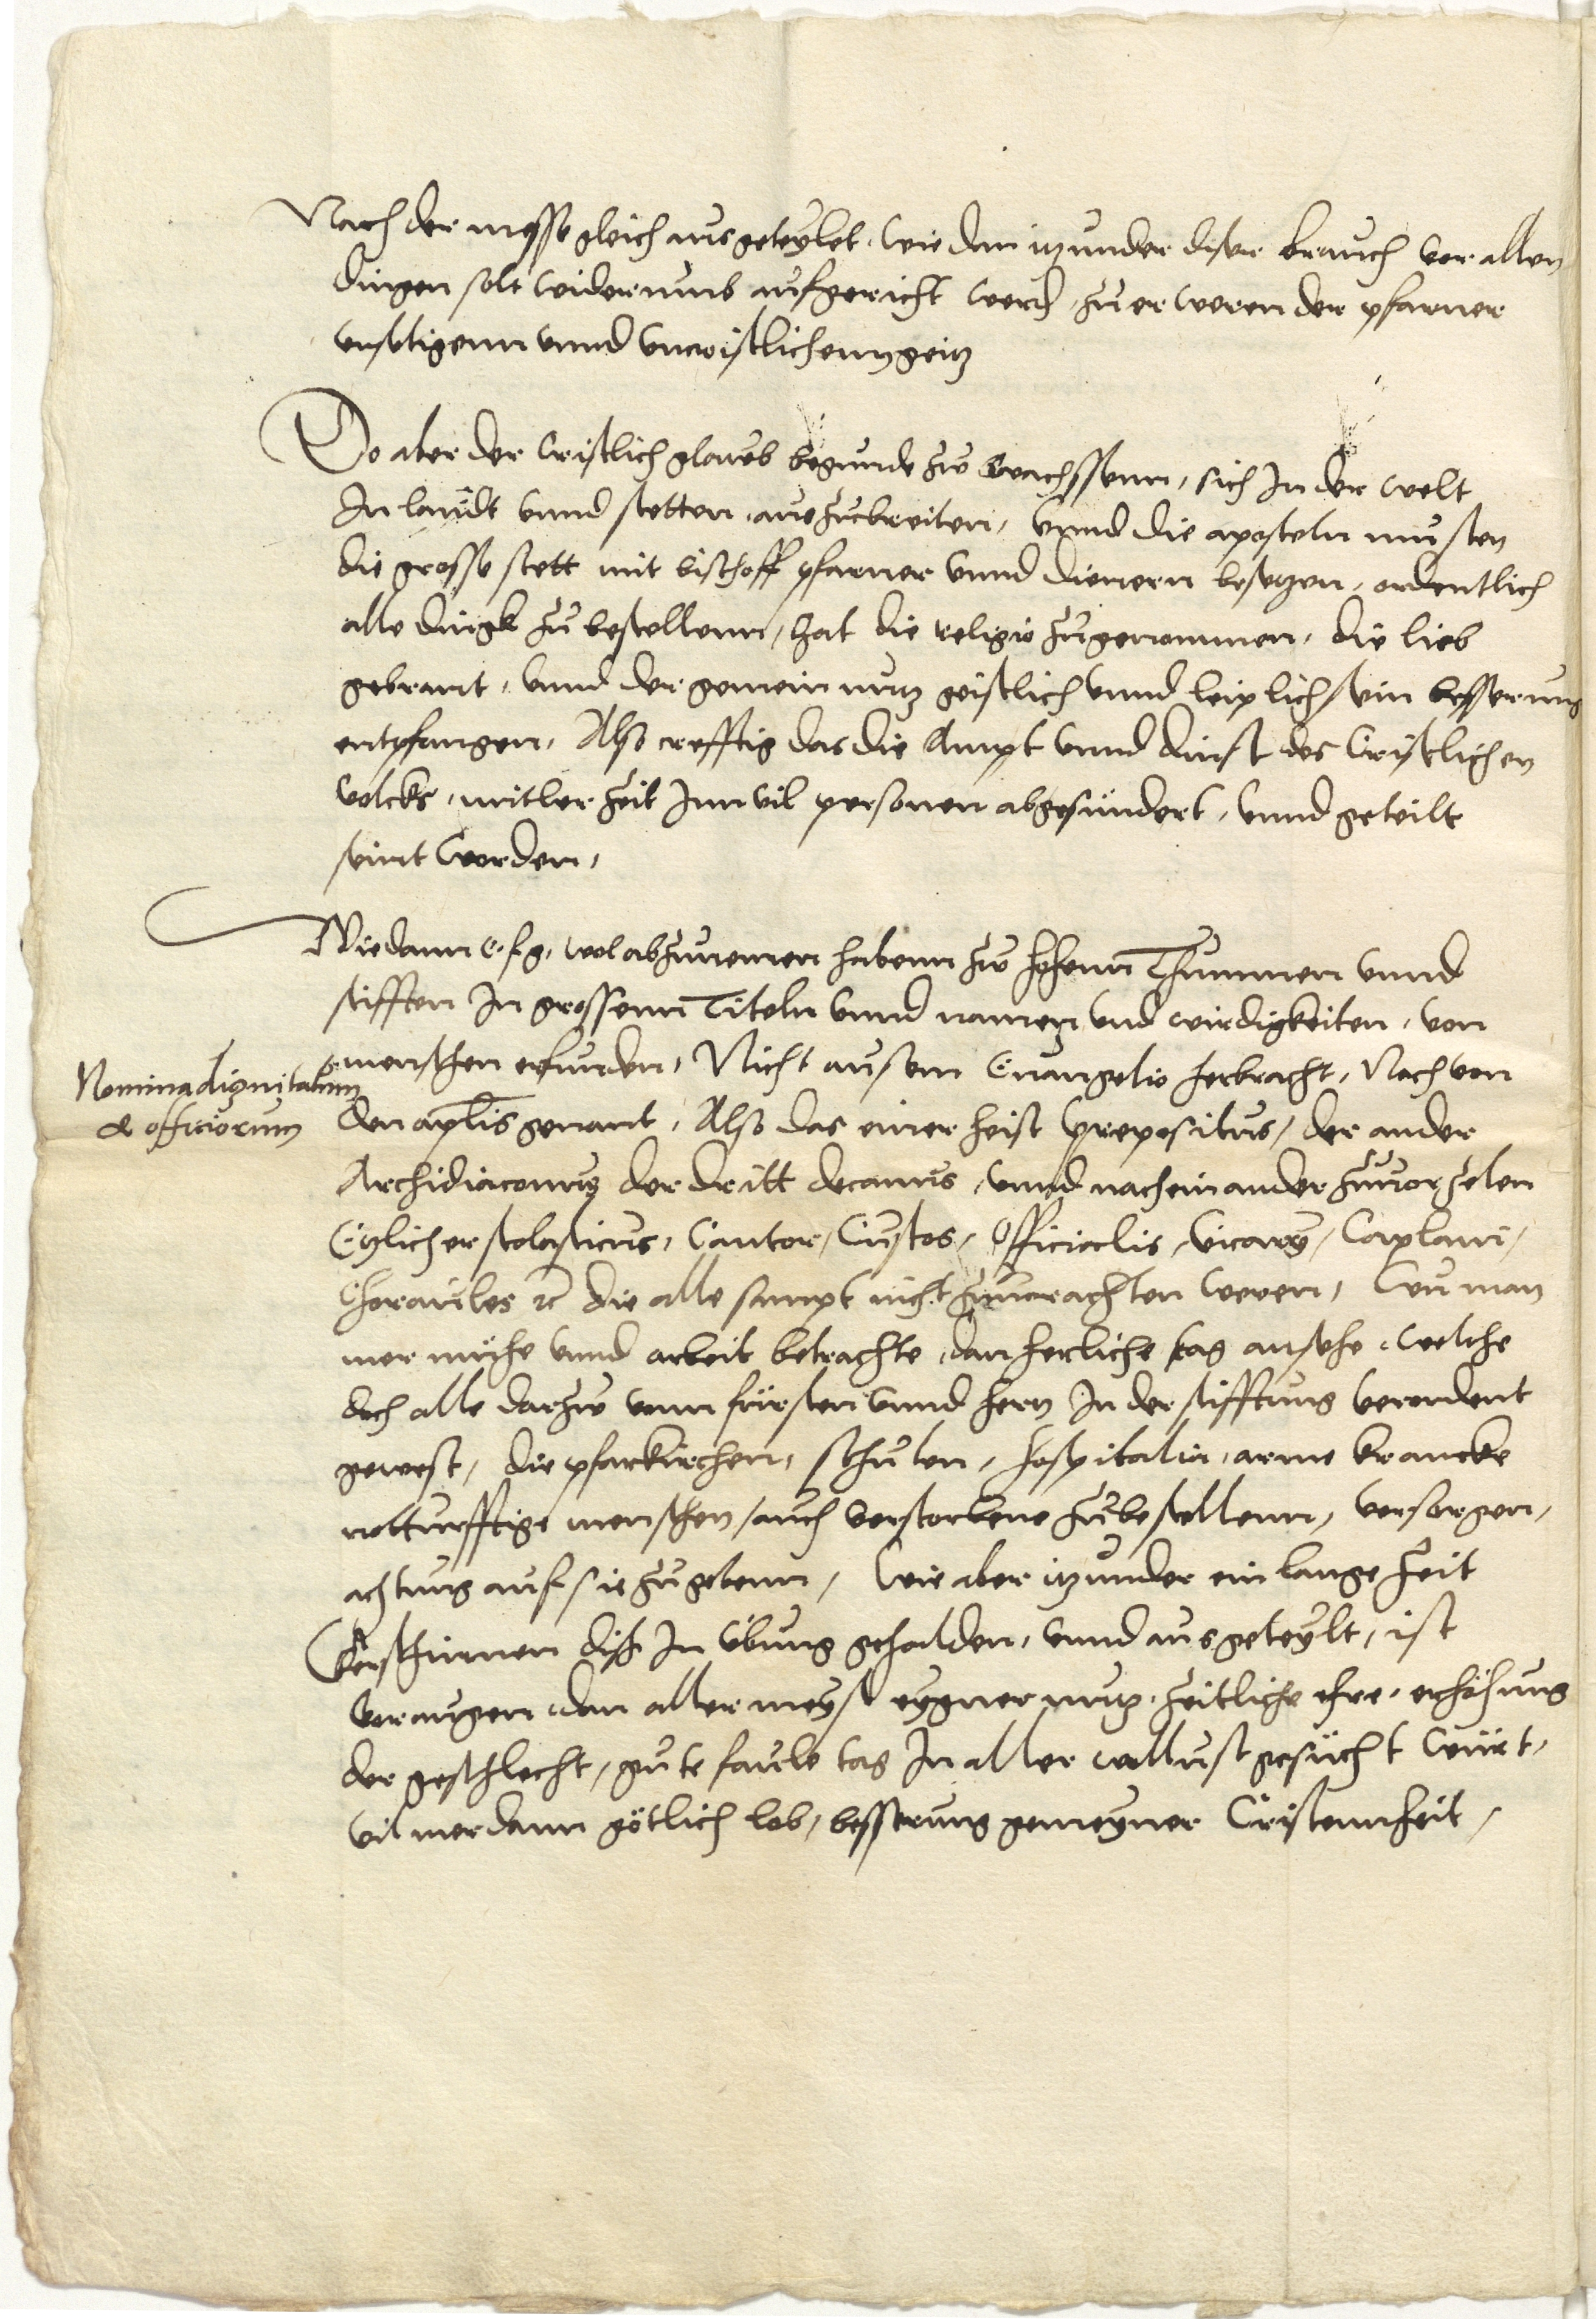 Nach der messe gleich ausgeteylet, wie dan itzunder diser brauch vor allen
dingen solt widerumb aufgericht werd, zu erweren der pfarner
unseligenn unnd uncristlichenn geitz
Do aber der Cristlich glaub begunde zw wachssenn, sich In der welt
In landt unnd stetten auszubreiten, unnd die aposteln musten
die grosse stett mit bischoff pfarner unnd dienern besetzen, ordentlich
alle dingk zu bestellenn, hat die religio zugenommen, die lieb
gebrant, unnd der gemein nutz geistlich unnd leiplich sein besserung
entpfangen, Also crefftig das die Ampt unnd dinst des Cristlichen
volcks, mitler zeit Inn vil personen abgesundert, unnd geteilt
seint worden,
Wie dann e. f. g. wol abzunemen habenn zw hohenn Thummen unnd
stifften In grossenn Titeln unnd namen und wirdigkeiten, von
menschen erfunden, Nicht aus dem Euangelio herbracht, Noch von
Nomina dignitatum
& officiorum
den aplis genant, Also das einer heist prepositus, der ander
Archidiaconus der dritt decanus, unnd nach einander zuuorzelen
Etzlicher scolasticus, Cantor, Custos, Officialis, vicarii, Caplani,
Choraules etc die alle sampt nicht zuuorachten weren, wu man
mer mühe unnd arbeit betrachte, dan herliche tag ansehe, welche
doch alle darzw vonn fürsten unnd hern In der stifftung verordent
gewest, die pfarkirchen, schulen, hospitalia, arme krancke
notturfftige menschen, auch verstorbene zu bestellenn, versorgen,
achtung auf sie zu gebenn, Wie aber itzunder ein lange zeit
verschinnen diss In übung gehalden, unnd ausgeteylt, ist
vor augen, dan aller meyst eygner nutz, zeitliche ehre, erhöhung
der geschlecht, gute faule tag In aller wollust gesücht würt,
vil mer dann götlich lob, besserung gemeyner Cristennheit,